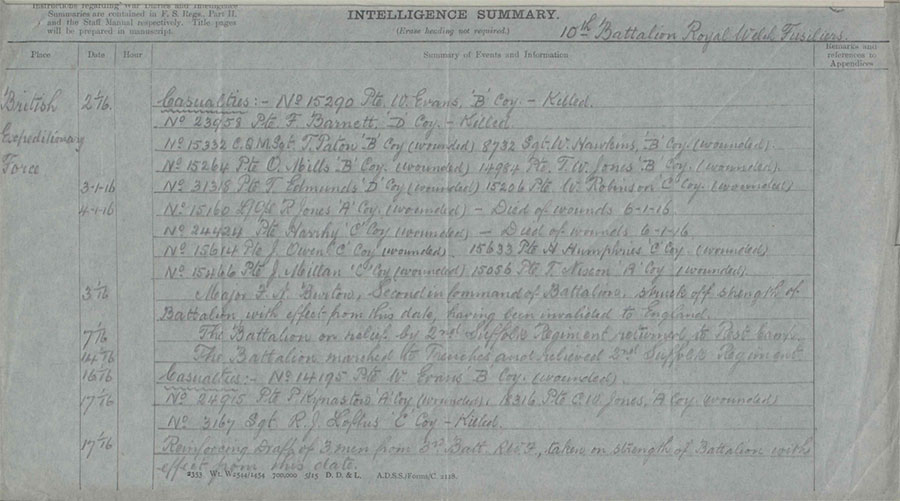 Instructions regarding War Diaries and Intelligence
Summaries are contained in F. S. Regs., Part II.
and the Staff Manual respectively. Title pages
will be prepared in manuscript.
INTELLIGENCE SUMMARY.
(Erase heading not required.)
10th Battalion Royal Welch Fusiliers.
Place Date Hour Summary of Events and Information Remarks and
references to
Appendices
British Expeditionary Force
2/1/16. Casualties:- No 15290 Pte. W. Evans, 'B' Coy. - Killed.
No 23958 Pte F Barnett, 'D' Coy. - Killed.
No 15332 C.Q.M.Sgt. T. Paton 'B' Coy (wounded) 8732 Sgt. W. Hawkins, 'B' Coy. (wounded).
No 15264 Pte O. Mills 'B' Coy. (wounded) 14984 Pte. T. W. Jones 'B' Coy. (wounded).
3-1-16 No 31318 Pte T. Edmunds 'D' Coy (wounded) 15206 Pte W. Robinson 'C' Coy. (wounded)
4-1-16 No 15160 L/Cpl R Jones 'A' Coy. (wounded) - Died of wounds 6-1-16.
No 24424 Pte 'C' Coy (wounded) - Died of wounds 6-1-16.
No 15614 Pte J. Owen 'C' Coy (wounded). 15633 Pte H Humphries 'C' Coy. (wounded)
No 15466 Pte J. Millan 'C' Coy (wounded) 15056 Pte T. Nixon 'A' Coy (wounded).
3/1/16 Major F. A. Burton, Second in Command of Battalion, struck off strength of
Battalion with effect from this date, having been invalided to England.
7/1/16 The Battalion on relief by 2nd Suffolk Regiment returned to Rest
14/1/16 The Battalion marched to Trenches and relieved 2nd Suffolk Regiment
16/1/16 Casualties:- No 14195 Pte W. Evans 'B' Coy. (wounded)
17/1/16 No 24915 Pte P Kynaston 'A' Coy (wounded), Pte C. W. Jones, A Coy. (wounded)
No 3167 Sgt. R. J. Loftus 'C' Coy - Killed.
17/1/16 Reinforcing Draft of 3 men from 3rd Batt. R.W.F., taken on strength of Battalion with
effect from this date.
2353 Wt. W2544/1454 700,000 5/15 D. D. & L. A.D.S.S./Forms/C. 2118.